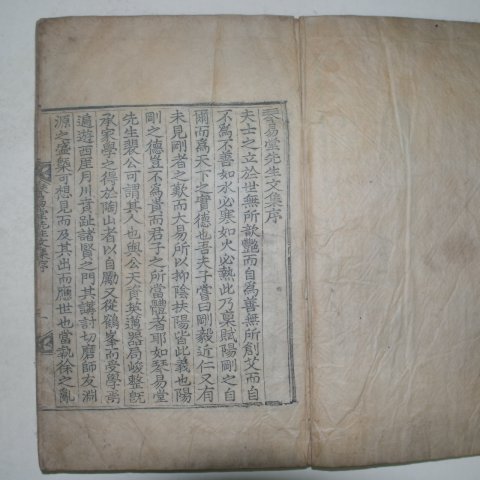 琴易堂先生文集序
夫士之立於世無所歆艶而自為善無所創艾而自
不為不善如水必寒如火必熱此乃稟賦陽剛之自
爾而為天下之實德也吾夫子嘗曰剛毅近仁又有
未見剛者之歎而大易所以抑陰扶陽皆此義也陽
剛之德豈不為貴而君子之所當體者耶如琴易堂
先生裴公可謂其人也與公天資英邁器局峻整旣
承家學之得於陶山者以自勵又從鶴峯而受學亭
遍遊西厓月川育趾諸賢之門其講討切磨師友淵
源之盛槩可想見而及其出而應世也當孰徐之亂
琴易堂先生文集序
一